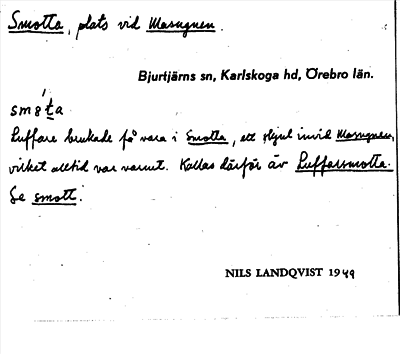 Smotta, plats vid Masugnen.
Bjurtjärns sn, Karlskoga hd, Örebro län.
smota
Luffare brukade få vara i Smotta, ett skjul invid Masugnen,
vilket alltid var varmt. Kallas därför äv Luffarsmotta.
Se smott.
NILS LANDQVIST 1949